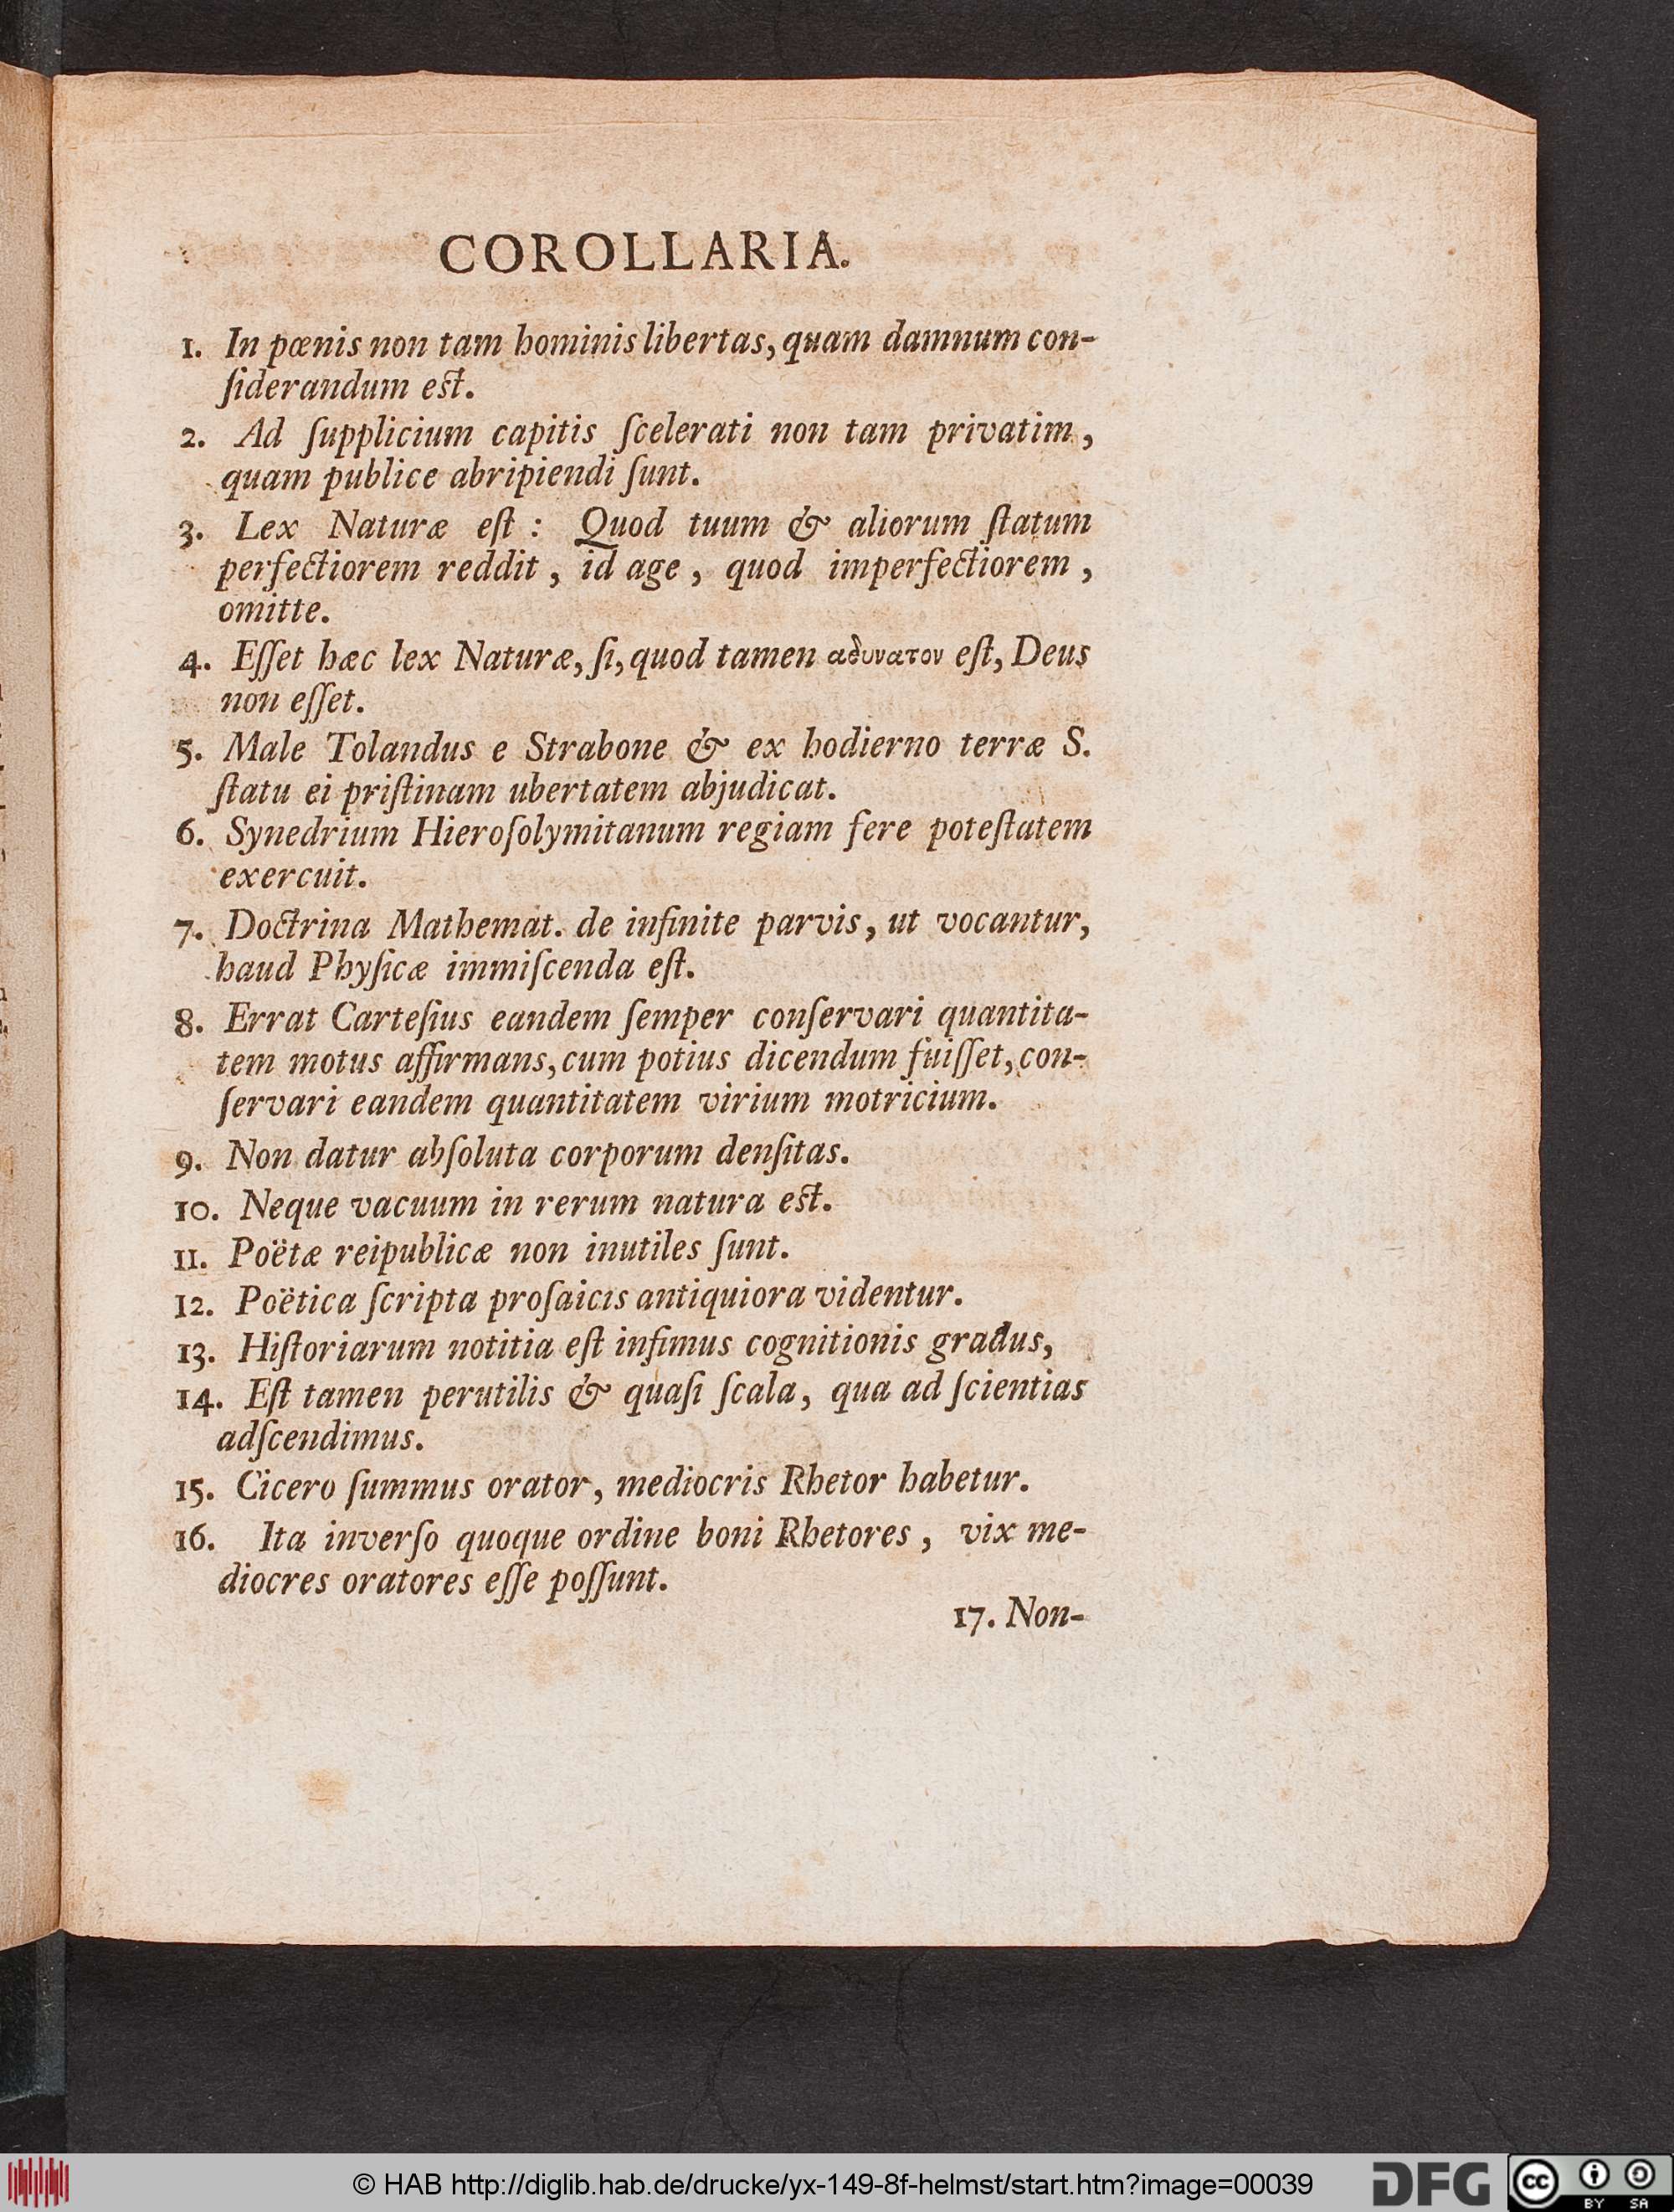 COROLLARIA.
1. In pœnis non tam hominis libertas, quam damnum con-
ſiderandum eſt.
2. Ad ſupplicium capitis ſcelerati non tam privatim,
quam publice abripiendi ſunt.
3. Lex Naturæ eſt : Quod tuum & aliorum ſtatum
perfectiorem reddit, id age, quod imperfectiorem,
omitte.
4. Eſſet hæc lex Naturæ, ſi, quod tamen αδυνατον eſt, Deus
non eſſet.
5. Male Tolandus e Strabone & ex hodierno terræ S.
ſtatu ei priſtinam ubertatem abjudicat.
6. Synedrium Hieroſolymitanum regiam fere poteſtatem
exercuit.
7. Doctrina Mathemat. de infinite parvis, ut vocantur,
haud Phyſicæ immiſcenda eſt.
8. Errat Carteſius eandem ſemper conſervari quantita-
tem motus affirmans, cum potius dicendum fuiſſet, con-
ſervari eandem quantitatem virium motricium.
9. Non datur abſoluta corporum denſitas.
10. Neque vacuum in rerum natura eſt.
11. Poëtæ reipublicæ non inutiles ſunt.
12. Poëtica ſcripta proſaicis antiquiora videntur.
13. Hiſtoriarum notitia eſt infimus cognitionis gradus,
14. Eſt tamen perutilis & quaſi ſcala, qua ad ſcientias
adſcendimus.
15. Cicero ſummus orator, mediocris Rhetor habetur.
16. Ita inverſo quoque ordine boni Rhetores, vix me-
diocres oratores eſſe poſſunt.
17. Non-
© HAB http://diglib.hab.de/drucke/yx-149-8f-helmst/start.htm?image=00039
DFG
cc BY SA